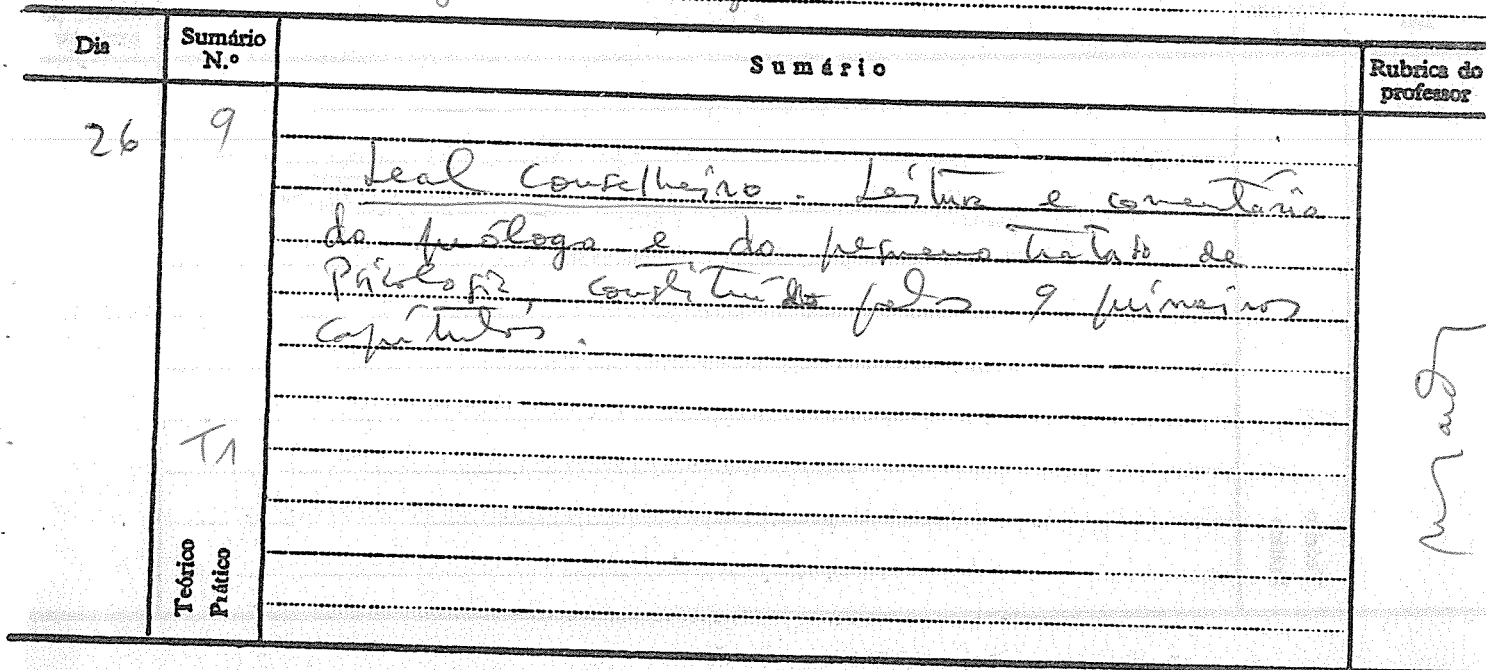 Dia
Sumário N.º
Sumário
Rubrica do professor
26
9
Leal Conselheiro. Leitura e comentário
do prólogo e do pequeno tratado de
Psicologia, constituído pelos 9 primeiros
capítulos.
T1
Teórico
Prático